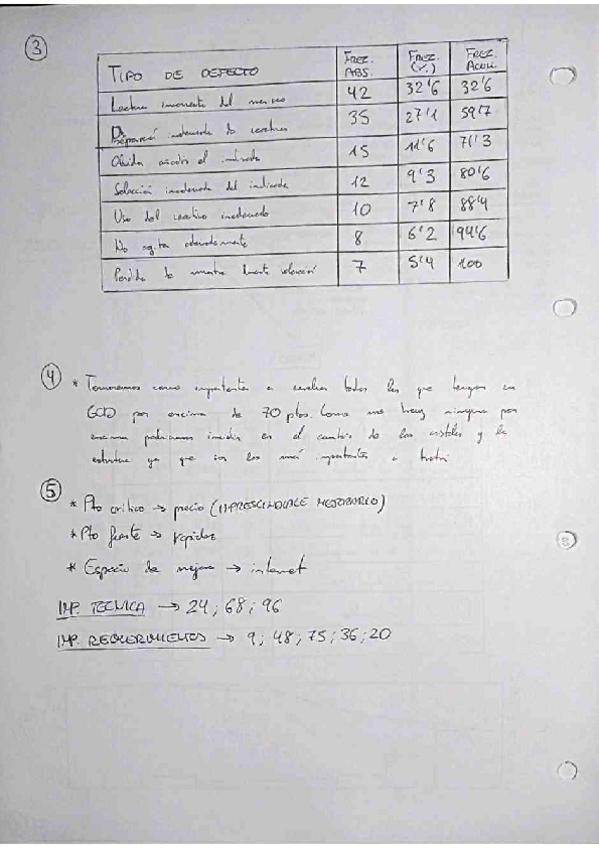 ③
TIPO DE DEFECTO FREZ. ABS. FREZ. (%) FREZ. ACUM.
Lectura del menisco 42 32'6 32'6
Preparación inadecuada de reactivos 35 27'1 59'7
Olvidar añadir el indicador 15 11'6 71'3
Selección inadecuada del indicador 12 9'3 80'6
Uso del reactivo inadecuado 10 7'8 88'4
No agitar adecuadamente 8 6'2 94'6
Perdida de muestra durante 7 5'4 100
④ * Tomaremos como importantes a resolver todos los que tengan un
por encima de 70 ptos. Como no hay ninguno por
encima podríamos incidir en el cambio de los y la
estructura ya que son los más importantes a tratar
⑤ * Pto crítico → precio (IMPRESCINDIBLE MEJORARLO)
* Pto fuerte → rapidez
* Espacio de mejora → internet
IMP. TECNICA → 24; 68; 96
IMP. REQUERIMIENTOS → 9; 48; 75; 36; 20